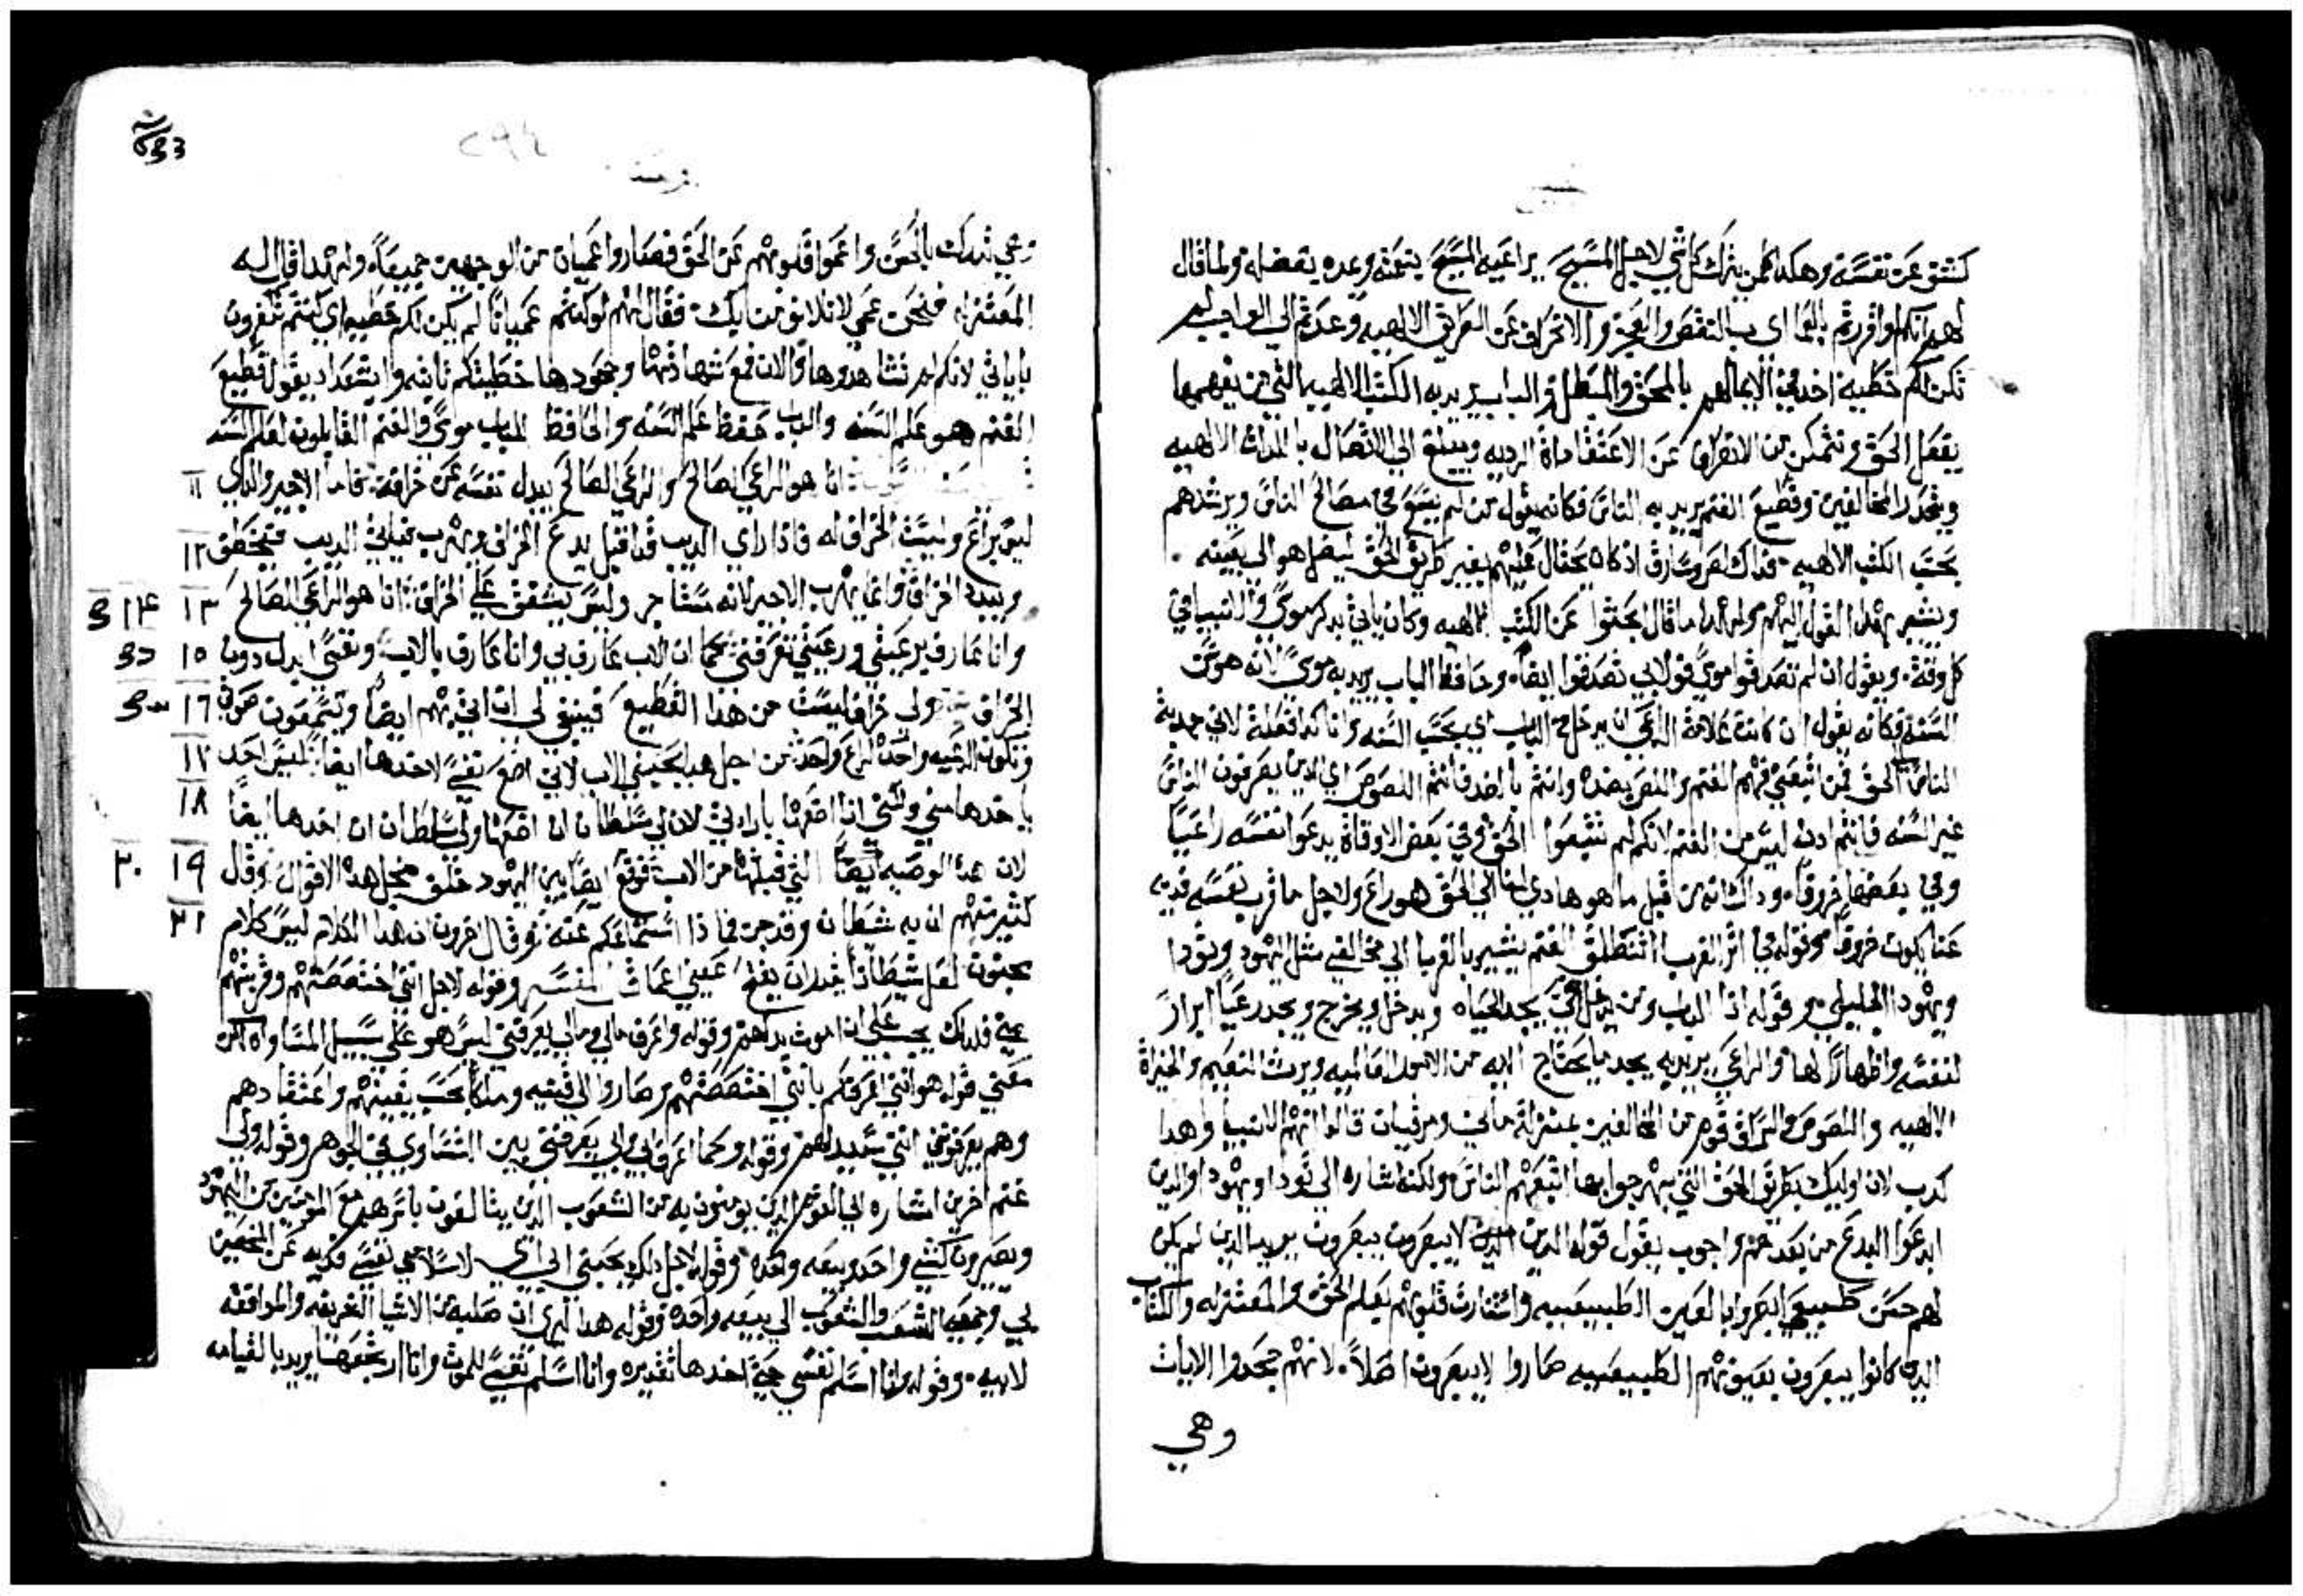 كشف عن نفسه وهكذا كلمن يترك كل شي لاجل المسيح يراعيه المسيح بنعمته وعده بفضله ولما قال
لهم انكم لو اقررتم بالعما اي بالنقص والعجز والانحراف عن الطريق الالهيه وعدتم الي الواجب لم
تكن لكم خطيه اخد في الايما لهم بالمحق والمبطل والباب يريد به الكتب الالهيه التي من يفهمها
يفعل الحق ويتمكن من الافتراق عن الاعتقاداة الرديه ويبلغ الي الاتصال بالذات الالهيه
ويحدر المخالفين وقطيع الغنم يريد به الناس فكانه يقول من لم يسع في مصالح الناس ويرشدهم
بحسب الكتب الالهيه فذاك لص وسارق اذ كان يحتال عليهم بغير طريق الحق ليضلهم الي بغيته
ويشير بهذا القول اليهم ولهذا ما قال ابحثوا عن الكتب الالهيه وكان ياتي بذكر موسي والانبيا في
كل وقت ويقول ان لم تصدقوا موسي فولا بي تصدقوا ايضا وحافظ الباب يريد به موسي لانه هو سن
السنه فكانه يقول ان كانت علامة الراعي ان يدخل من الباب اي بحسب السنه وانا كذا فعلت لاني جديت
الناس الحق فمن اتبعني فهم الغنم واللص بضده وانتم بالضد فانتم اللصوص اي الذين يصرفون الناس
غير السنه فانتم ادن ليس من الغنم لانكم لم تتبعوا الحق وفي بعض الاوقاة يدعوا نفسه راعيا
وفي بعضها خروفا وذاك انه من قبل ما هو هادي لنا الي الحق هو راع ولاجل ما قرب نفسه فديه
عنا يكون خروفا وقوله في اثر الغرب انتطلق الغنم يشير بالغربا الي مخالفي مثل اليهود وتودا
ويهودا الجليلي وقوله انا الباب ومن يدخل بي يجد الحياه ويدخل ويخرج ويجد رعيا ابرازا
لنفسه واظهارا لها والراعي يريد به يجد ما يحتاج اليه من الامور العالميه ويرث النعيم والخيراة
الالهيه واللصوص والسراق قوم من المخالفين بمنزلة ماني ومرقيان قالوا انهم الانبيا وهذا
كدب لان اوليك بطريق الحق التي نهجوا بها اتبعهم الناس ولكنه اشاره الي تودا ويهودا والذين
ابدعوا البدع من بعد خروجوب يقول قوله الدين الدين لا يبصرون يبصرون يريد الدين لم يكن
لهم حس طبيعي ابصروا بالعين الطبيعيه واستنارت قلوبهم بعلم الحق والمعتزله والكتاب
الدين كانوا يبصرون بعيونهم الطبيعيه صاروا لا يبصرون اصلا لانهم جحدوا الايات
وهي
633
وهي تدرك بالحس واعموا قلوبهم عن الحق فصاروا عميان من الوجهين جميعا ولهذا قال له
المعتزله فنحن عمي لا نلاذ من ذلك فقال لهم لو كنتم عميانا لم يكن لكم خطيه اي كنتم تكفرون
باياتي لانكم لم تشاهدوها والان فمع مشاهدتها وجحودها خطيتكم ثابته وايشعداد يقول قطيع
الغنم هو علم السنه والباب حفظ علم السنه والحافظ للباب موسي والغنم القابلون لعلم السنه
انا هو الراعي الصالح والراعي الصالح يبدل نفسه عن خرافه فاما الاجير والذي ١١
ليس براع وليست الخراف له فاذا راي الديب قد اقبل يدع الخراف ويهرب فياتي الديب فيخطف ١٢
ويبدد الخراف وانما يهرب الاجير لانه مستاجر وليس يشفق علي الخراف انا هو الراعي الصالح ١٣ ١٤
وانا عارف برعيتي ورعيتي تعرفني كما ان الاب عارف بي وانا عارف بالاب ونفسي ابدل دون ١٥
الخراف ولي خراف ليست من هذا القطيع فينبغي لي ان اتي بهم ايضا وتسمعون صوتي ١٦
وتكون الرعيه واحدة لراع واحد من اجل هذا يحبني الاب لاني اضع نفسي لاخدها ايضا ليس احد ١٧
ياخدها مني ولكني انا اضعها بارادتي لان لي سلطانا ان اضعها ولي سلطان ان اخدها ايضا ١٨
لان هذه الوصيه ايضا التي قبلتها من الاب فوقع ايضا بين اليهود خلف من اجل هذه الاقوال وقال ١٩ ٢٠
كثير منهم ان به شيطان وقد جن فما ذا استماعكم عنه وقال اخرون ان هذا الكلام ليس كلام ٢١
مجنون لعل شيطانا يقدر ان يفتح عيني اعما المفسر وقوله لاجل انني اختصصتهم وقربتهم
مني فلذلك يجب علي ان اموت بدلهم وقوله واعرف مالي ومالي يعرفني ليس هو علي سبيل المساواه لكن
معني قوله هو انني اعرفكم بانني اختصصتهم وصاروا لي قنيه وملكا بحسب يقينهم واعتقادهم
وهم يعرفوني انني سيد لهم وقوله وكما اعرف ابي وابي يعرفني بين التساوي في الجوهر وقوله ولي
غنم اخرين اشاره الي القوم الدين يومنون به من الشعوب الدين يتالفون باسرهم مع المومنين من اليهود
ويصيرون كشي واحد وبيعه واحده وقوله لاجل ذلك يحبني ابي لاسلامي نفسي فديه عن المخصين
بي وجمعي الشعب والشعوب الي بيعه واحده وقوله هذا ليري ان صلبه من الاشيا الشريفه والموافقه
لابيه وقوله وانا اسلم نفسي حتي اخدها تقديره وانا اسلم نفسي للموت وانا ارتجعها يريد بالقيامه